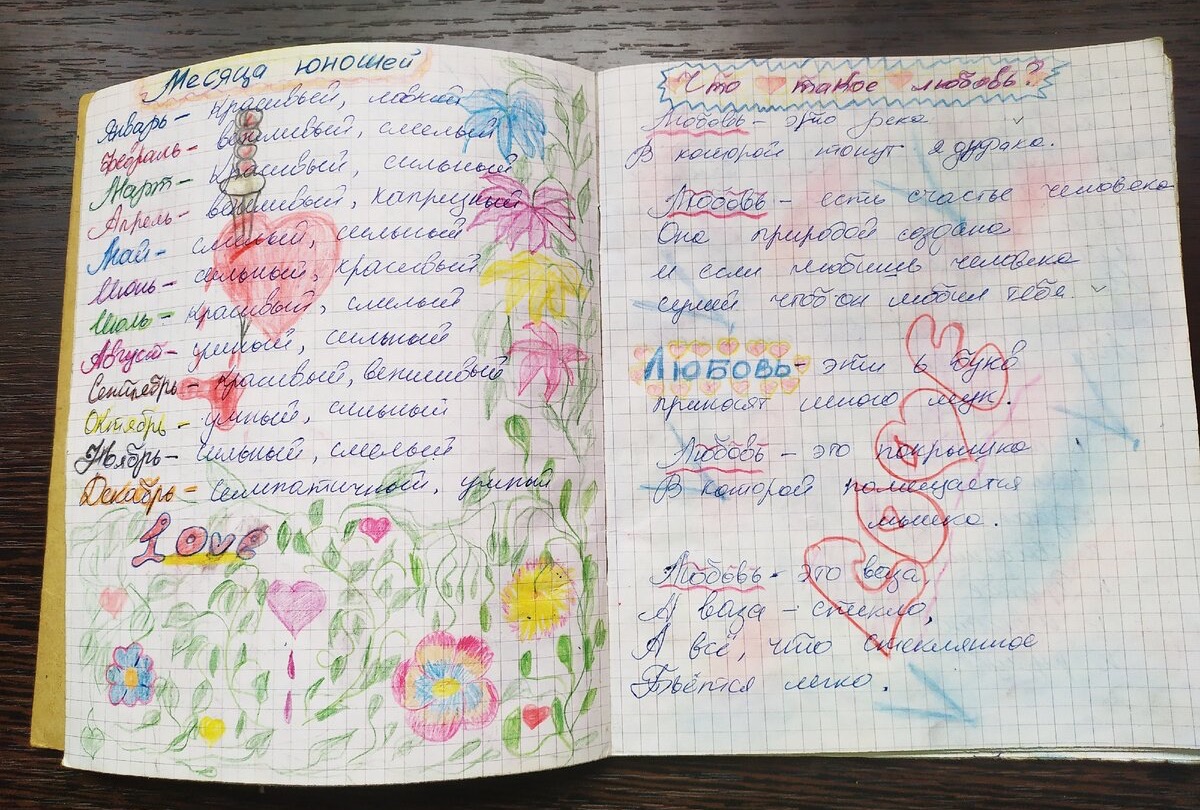 Месяца юношей
Январь - красивый, ловкий
Февраль - вежливый, смелый
Март - красивый, сильный
Апрель - вежливый, капризный
Май - смелый, сильный
Июнь - сильный, красивый
Июль - красивый, смелый
Август - умный, сильный
Сентябрь - красивый, вежливый
Октябрь - умный, сильный
Ноябрь - сильный, смелый
Декабрь - симпатичный, умный
Love
Что такое любовь?
Любовь - это река
В которой тонут я дурака.
Любовь - есть счастье человека
Она природой создана
и если любишь человека
сумей чтоб он любил тебя.
Любовь - эти 6 букв
приносят много мук.
Любовь - это покрышка
В которой помещается
мышка.
Любовь - это ваза,
А ваза - стекло,
А всё, что стеклянное
Бьётся легко.